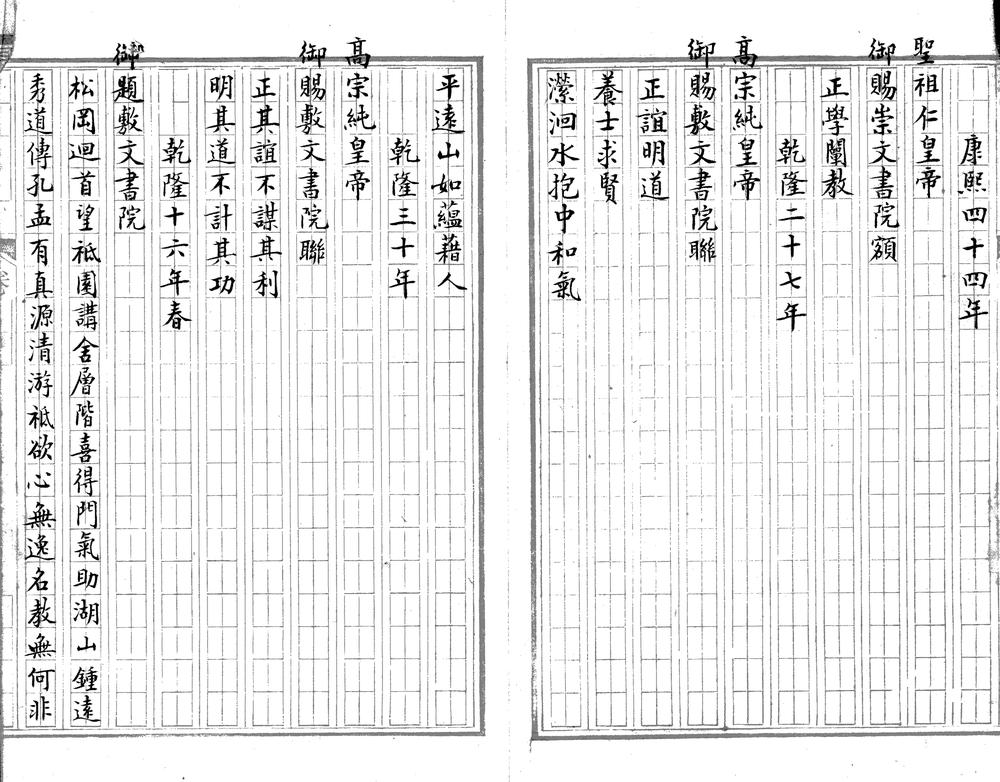 康熙四十四年
聖祖仁皇帝
御賜崇文書院額
正學闡教
乾隆二十七年
高宗純皇帝
御賜敷文書院聯
正誼明道
養士求賢
瀠洄水抱中和氣
平遠山如蘊藉人
乾隆三十年
高宗純皇帝
御賜敷文書院聯
正其誼不謀其利
明其道不計其功
乾隆十六年春
御題敷文書院
松岡迴首望祗園講舍層階喜得門氣助湖山鍾遠
秀道傳孔孟有真源清游祗欲心無逸名教無何非